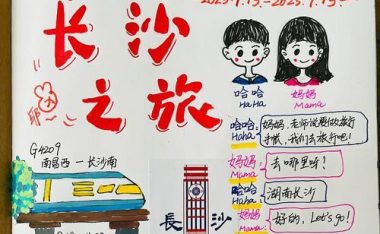 长沙
之旅
哈哈
HaHa
妈妈
Mama
哈哈:
Haha
妈妈,老师说要做旅行
手帐,我们去旅行吧!
妈妈:
Mama
去哪里呀?
哈哈:
Haha
湖南长沙
妈妈:
Mama
好的,Let's go!
G4209
南昌西—长沙南
長沙